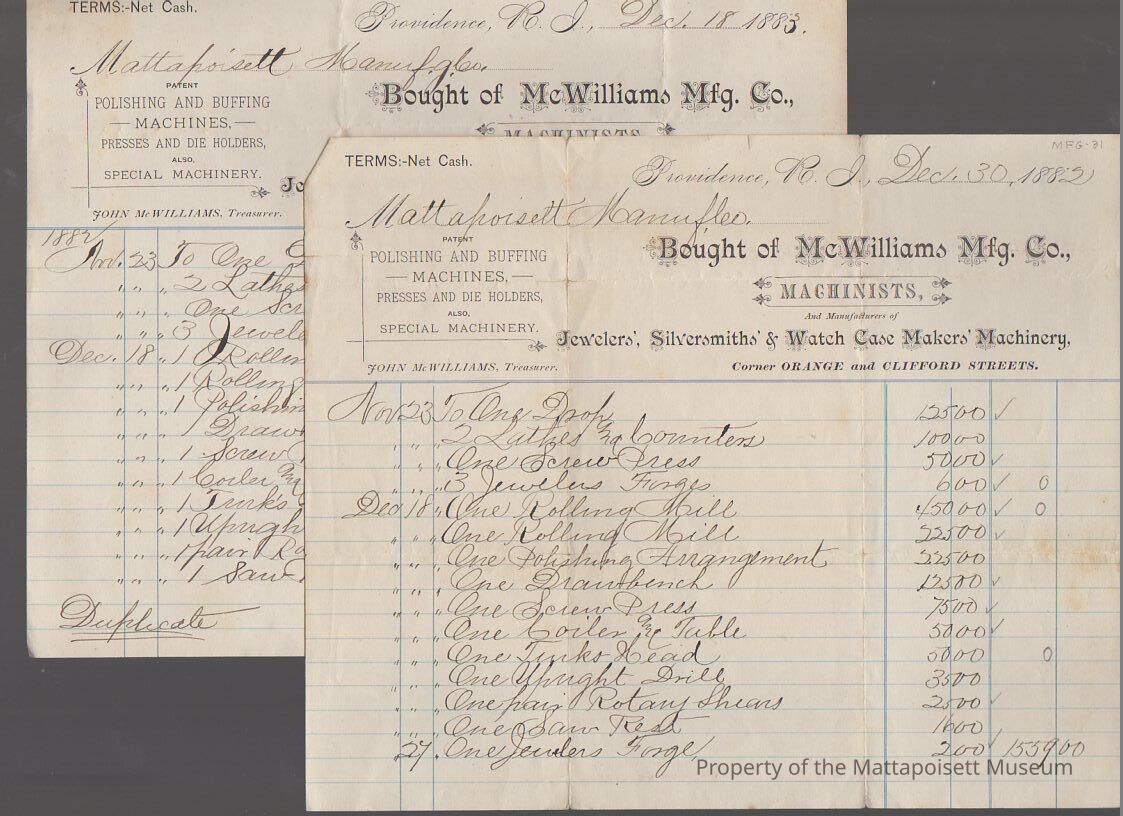 TERMS:-Net Cash.
Providence, R. I., Dec. 18 1883.
Mattapoisett Manuf.g.Co.
PATENT
POLISHING AND BUFFING
— MACHINES, —
PRESSES AND DIE HOLDERS,
ALSO,
SPECIAL MACHINERY.
JOHN McWILLIAMS, Treasurer.
Bought of McWilliams Mfg. Co.,
MACHINISTS
Je
1882
Nov. 23 To One
" " " 2 Lathes
" " " One Scr
" " " 3 Jewele
Dec. 18 " 1 Rollin
" " " 1 Rolling
" " " 1 Polishin
" " " 1 Draw
" " " 1 Screw
" " " 1 Coiler &
" " " 1 Turk's
" " " 1 Uprigh
" " " 1 pair Ro
" " " 1 Saw
Duplicate
MFG-31
TERMS:-Net Cash.
Providence, R. I., Dec. 30, 1882
Mattapoisett Manuf Co.
PATENT
POLISHING AND BUFFING
— MACHINES, —
PRESSES AND DIE HOLDERS,
ALSO,
SPECIAL MACHINERY.
JOHN McWILLIAMS, Treasurer.
Bought of McWilliams Mfg. Co.,
MACHINISTS,
And Manufacturers of
Jewelers', Silversmiths' & Watch Case Makers' Machinery,
Corner ORANGE and CLIFFORD STREETS.
Nov 23 To One Drop 125 00 ✓
" " " 2 Lathes & Counters 100 00
" " " One Screw Press 50 00 ✓
" " " 3 Jewelers Forges 6 00 ✓ 0
Dec 18 " One Rolling Mill 450 00 ✓ 0
" " " One Rolling Mill 225 00 ✓
" " " One Polishing Arrangement 225 00
" " " One Drawbench 125 00 ✓
" " " One Screw Press 75 00 ✓
" " " One Coiler & Table 50 00 ✓
" " " One Turks Head 50 00 0
" " " One Upright Drill 35 00
" " " One pair Rotary Shears 25 00 ✓
" " " One Saw Rest 16 00
" 27 " One Jewelers Forge 2 00 ✓ 1559 00
Property of the Mattapoisett Museum